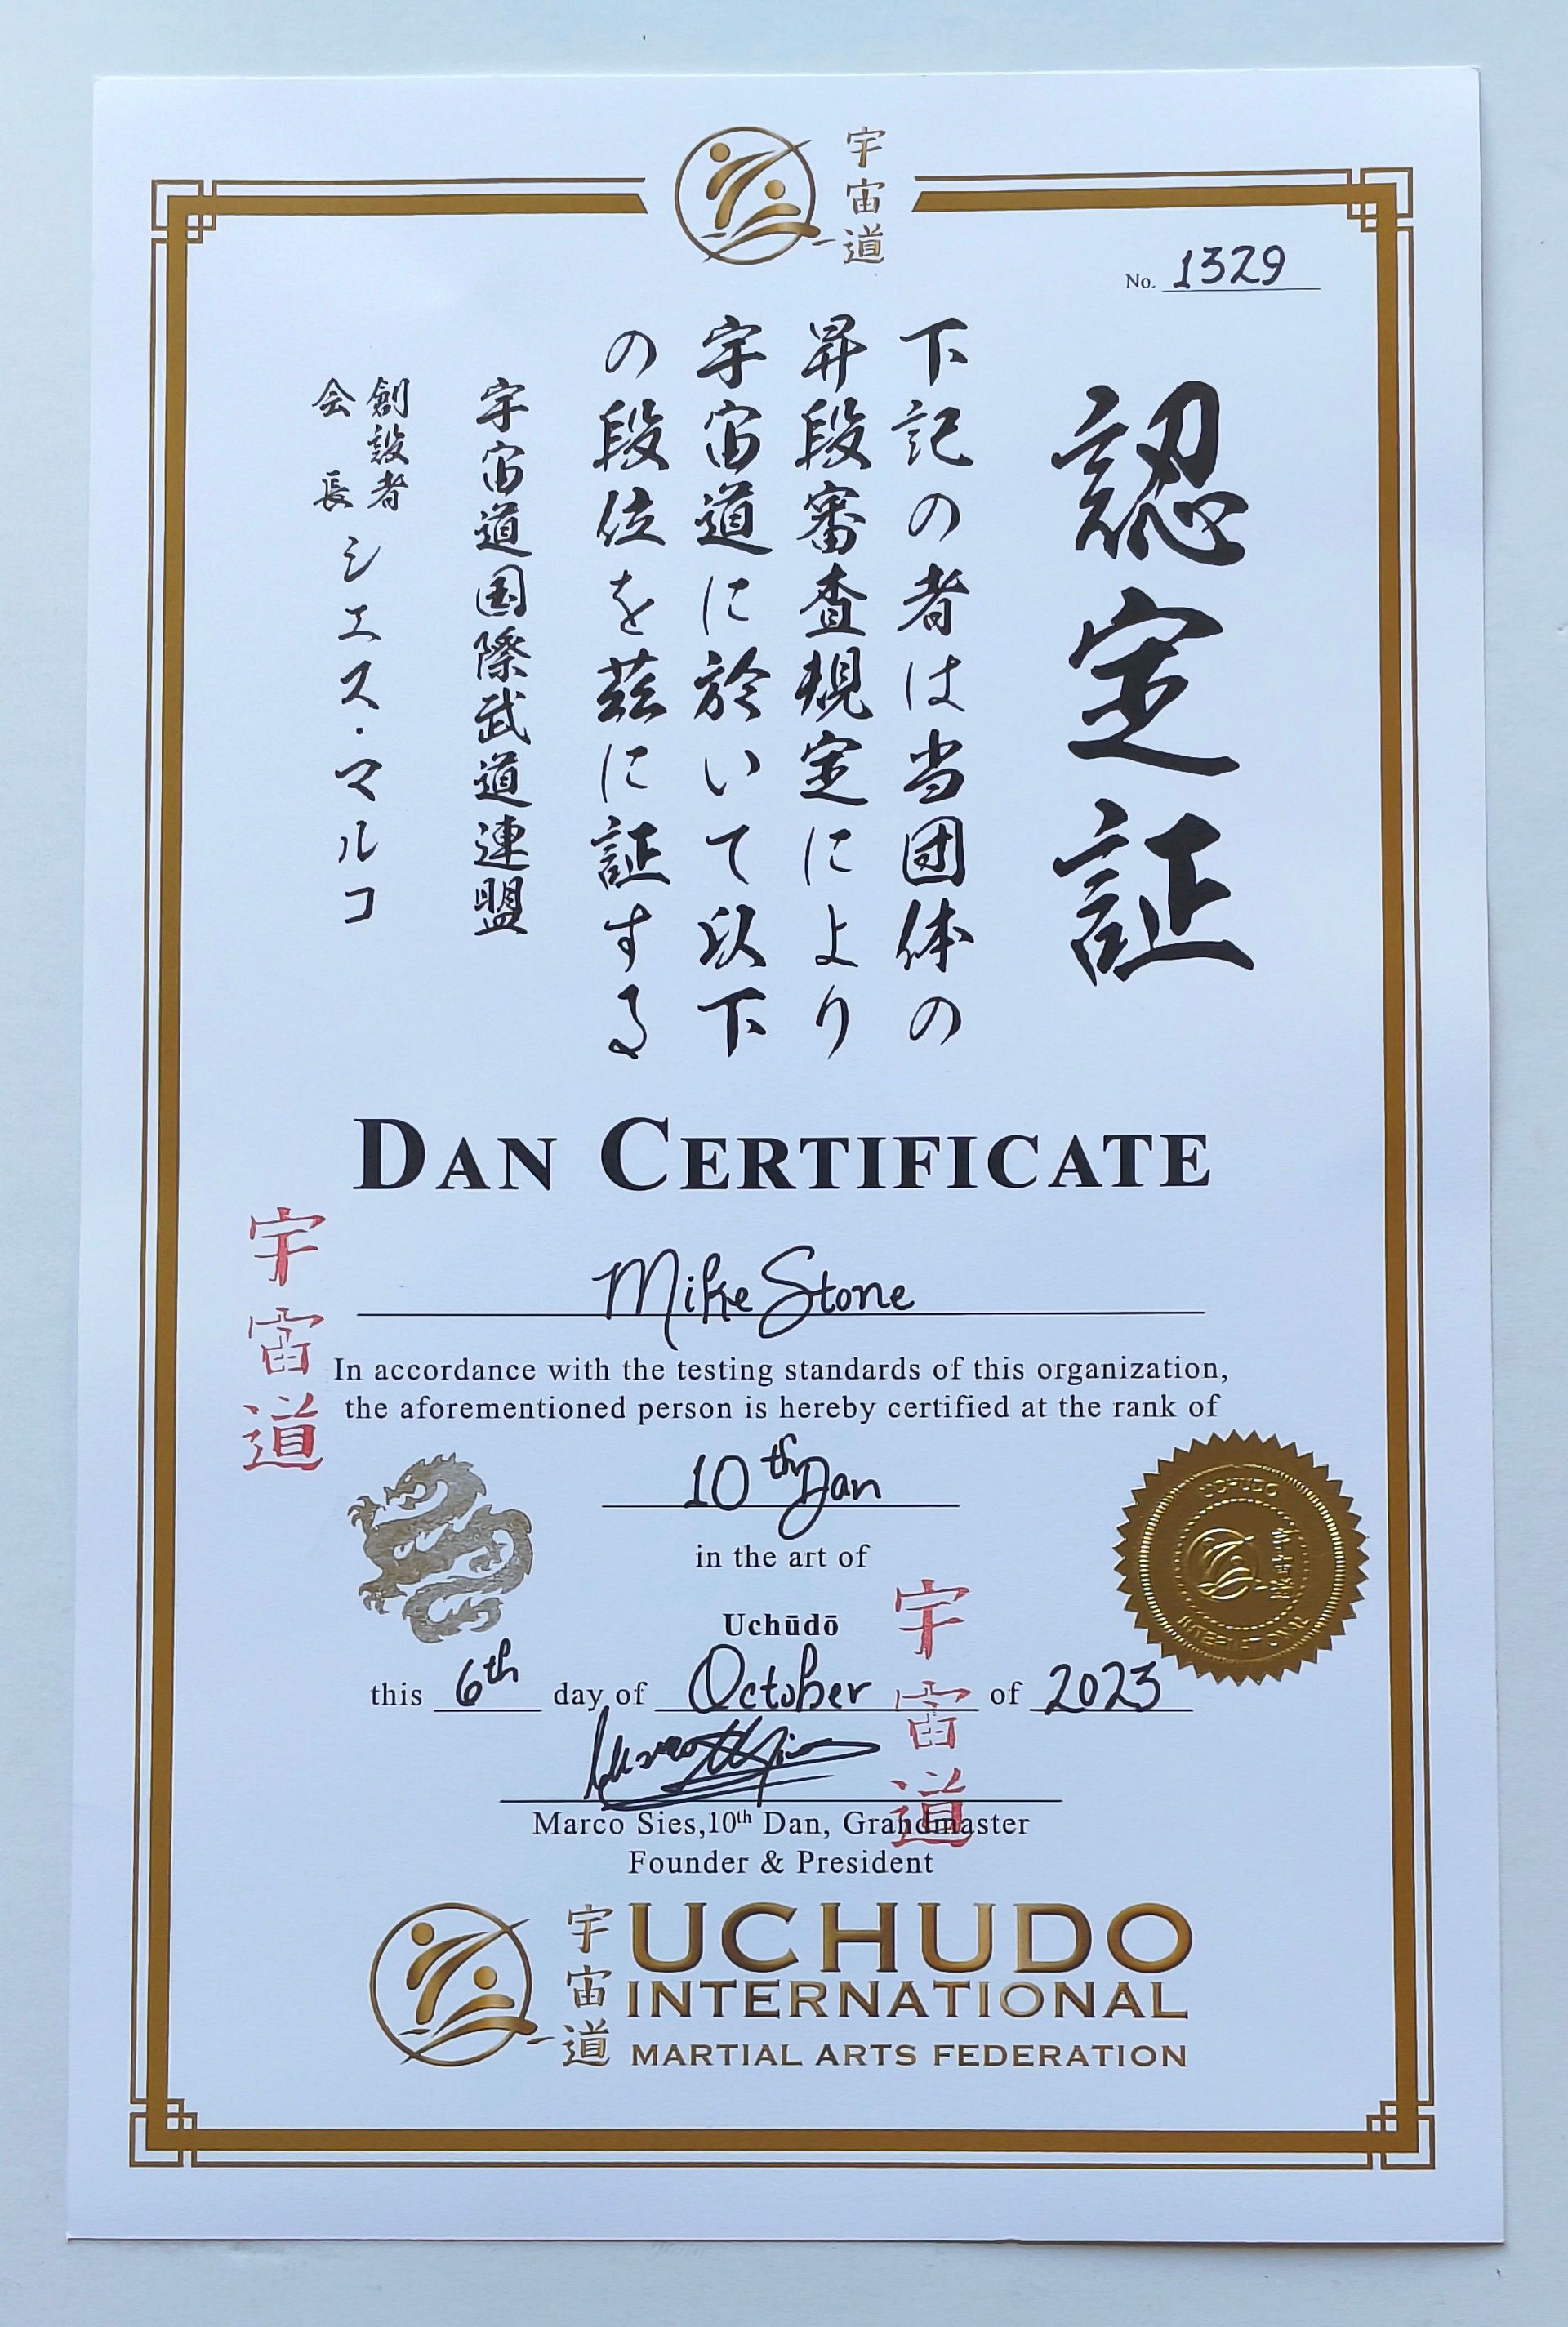 宇宙道
No. 1329
認定証
下記の者は当団体の
昇段審査規定により
宇宙道に於いて以下
の段位を茲に証する
宇宙道国際武道連盟
創設者
会長
シエス・マルコ
DAN CERTIFICATE
Mike Stone
宇宙道
In accordance with the testing standards of this organization,
the aforementioned person is hereby certified at the rank of
10th Dan
in the art of
Uchūdō
UCHUDO
宇宙道
INTERNATIONAL
宇宙道
this 6th day of October of 2023
Marco Sies,10th Dan, Grandmaster
Founder & President
宇宙道
UCHUDO
INTERNATIONAL
MARTIAL ARTS FEDERATION